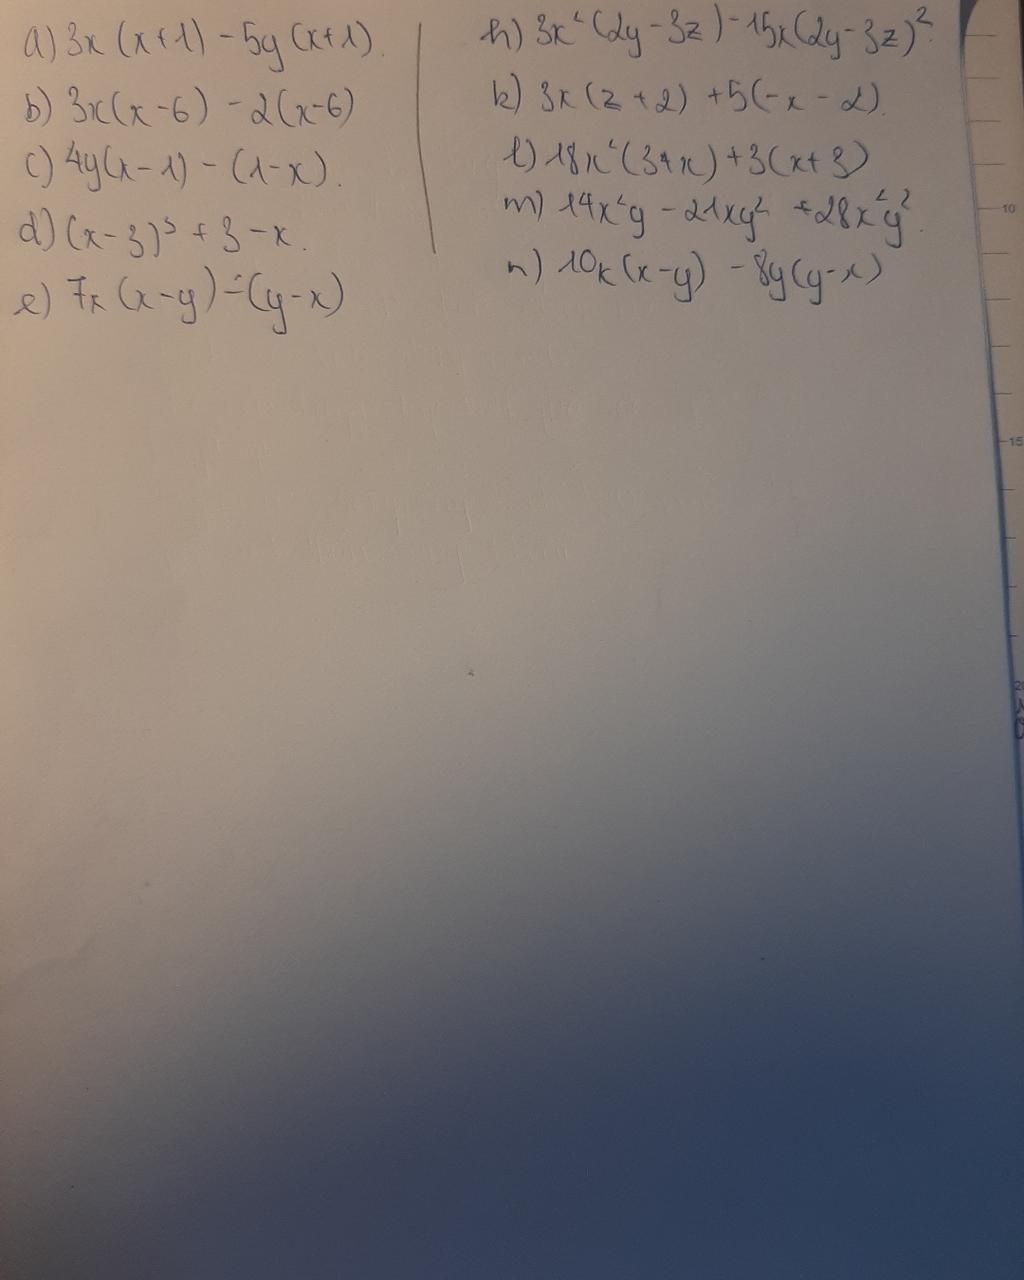 a) 3x (x+1) - 5y (x+1).
b) 3x(x-6) - 2(x-6)
c) 4y(x-1) - (1-x).
d) (x-3)³ + 3 - x.
e) 7x (x-y) - (y-x)
h) 3x² (2y - 3z) - 15x(2y-3z)².
k) 3x (z + 2) + 5(-x - 2).
l) 18x² (3+x) + 3(x+3)
m) 14x²y - 21xy² + 28x²y².
n) 10x (x-y) - 8y(y-x)
10
15